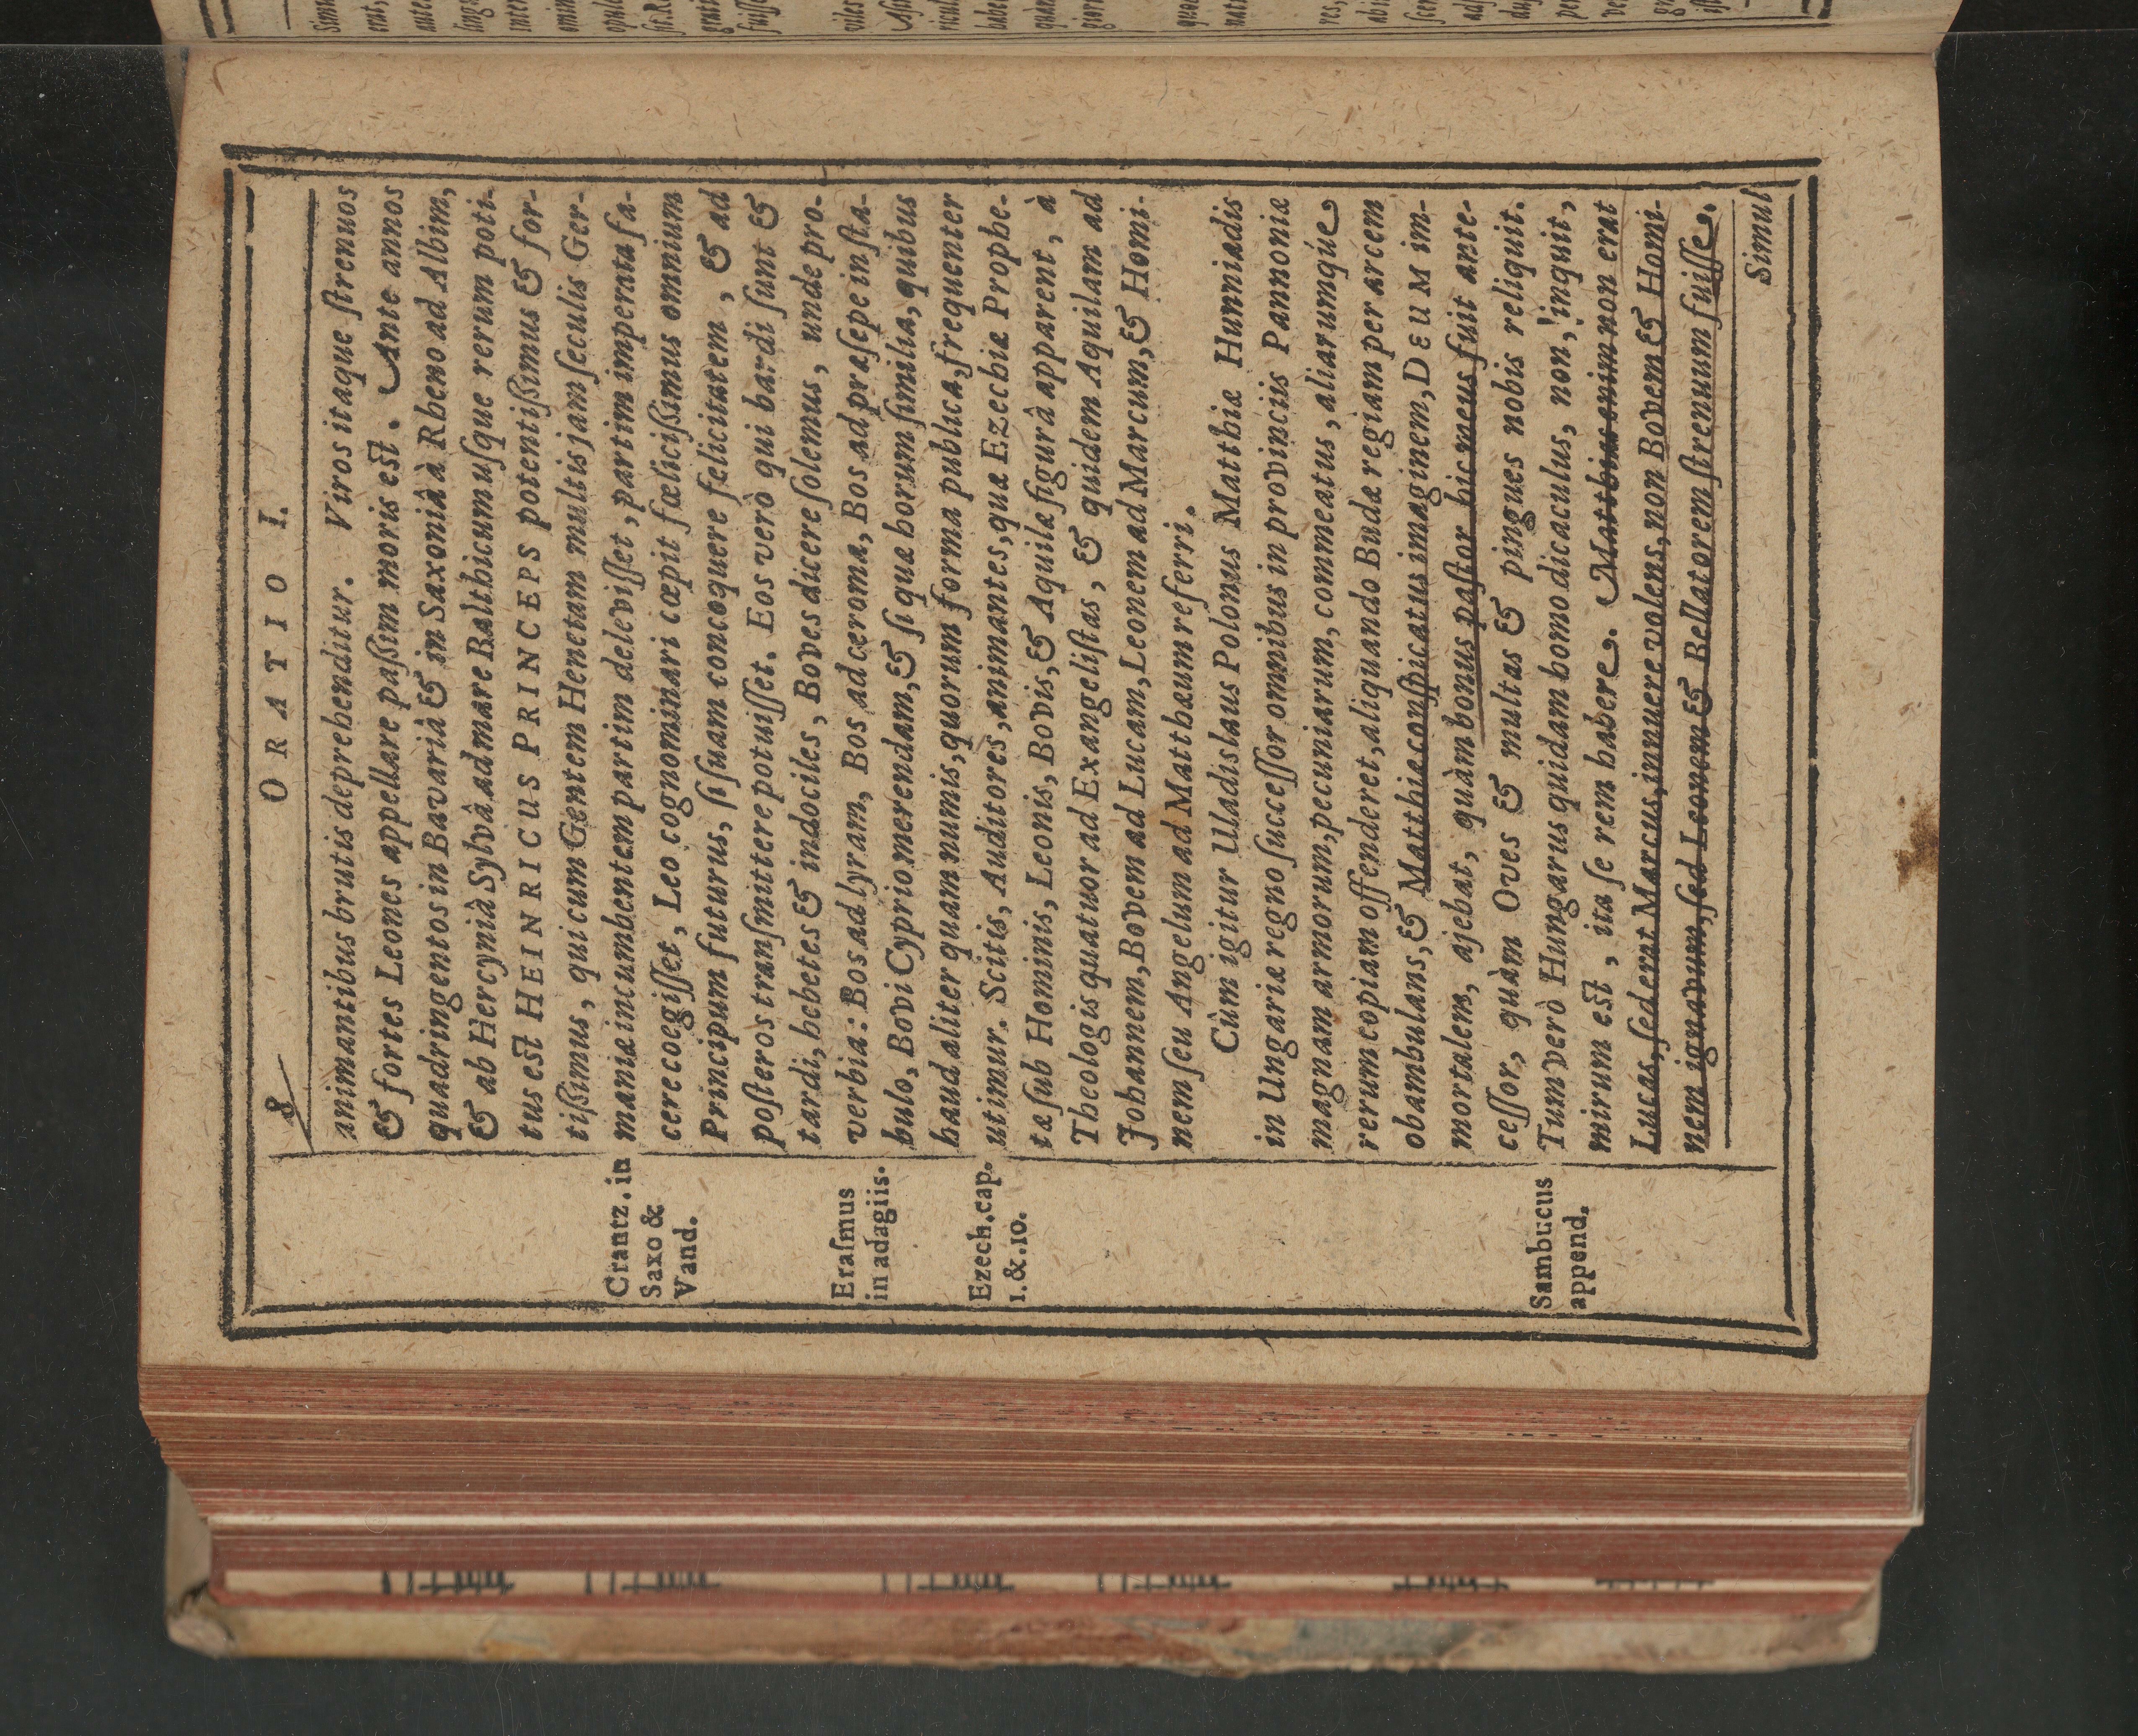 8 ORATIO I.
animantibus brutis deprehenditur. Viros itaque ſtrenuos
& fortes Leones appellare paßim moris eſt. Ante annos
quadringentos in Bavariâ & in Saxoniâ à Rheno ad Albim,
& ab Hercyniâ Sylvâ ad mare Balthicum uſque rerum poti-
tus eſt HEINRICUS PRINCEPS potentißimus & for-
tißimus, qui cum Gentem Henetam multis jam ſeculis Ger-
maniæ incumbentem partim deleviſſet, partim imperata fa-
cere coegiſſet, Leo cognominari cœpit fœlicißimus omnium
Principum futurus, ſi ſuam concoquere felicitatem, & ad
poſteros tranſmittere potuiſſet. Eos verò qui bardi ſunt &
tardi, hebetes & indociles, Boves dicere ſolemus, unde pro-
verbia: Bos ad lyram, Bos ad ceroma, Bos ad præſepe in ſta-
bulo, Bovi Cyprio merendam, & ſi quæ horum ſimilia, quibus
haud aliter quam numis, quorum forma publica, frequenter
utimur. Scitis, Auditores, animantes, quæ Ezechiæ Prophe-
tæ ſub Hominis, Leonis, Bovis, & Aquilæ figurâ apparent, à
Theologis quatuor ad Exangeliſtas, & quidem Aquilam ad
Johannem, Bovem ad Lucam, Leonem ad Marcum, & Homi-
nem ſeu Angelum ad Matthæum referri.
Cùm igitur Uladislaus Polonus Matthiæ Hunniadis
in Ungariæ regno ſucceſſor omnibus in provinciis Pannoniæ
magnam armorum, pecuniarum, commeatus, aliarumqúe
rerum copiam offenderet, aliquando Budæ regiam per arcem
obambulans, & Matthiæ conſpicatus imaginem, DEUM im-
mortalem, ajebat, quàm bonus paſtor hic meus fuit ante-
ceſſor, quàm Oves & multas & pingues nobis reliquit.
Tum verò Hungarus quidam homo dicaculus, non, inquit,
mirum eſt, ita ſe rem habere. Matthias enim non erat
Lucas, ſed erat Marcus, innuere volens, non Bovem & Homi-
nem ignavum, ſed Leonem & Bellatorem ſtrenuum fuiſſe.
Simul
Crantz. in
Saxo &
Vand.
Eraſmus
in adagiis.
Ezech. cap.
1. & .10.
Sambucus
append.